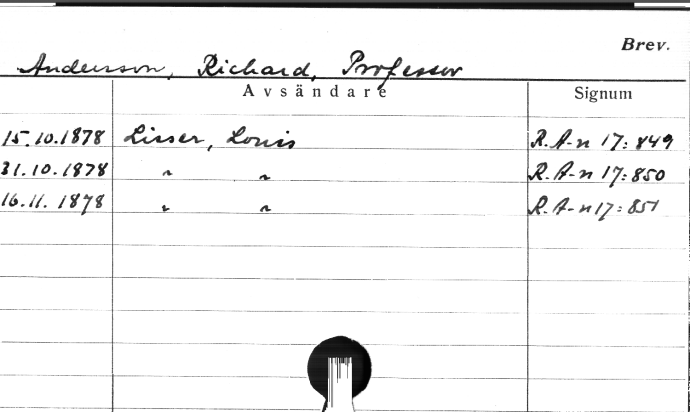 Brev.
Andersson, Richard, Professor
Avsändare Signum
15.10.1878 Lisser, Louis R. A-n 17:849
31.10.1878 " " R. A-n 17:850
16.11.1878 " " R. A-n 17:851